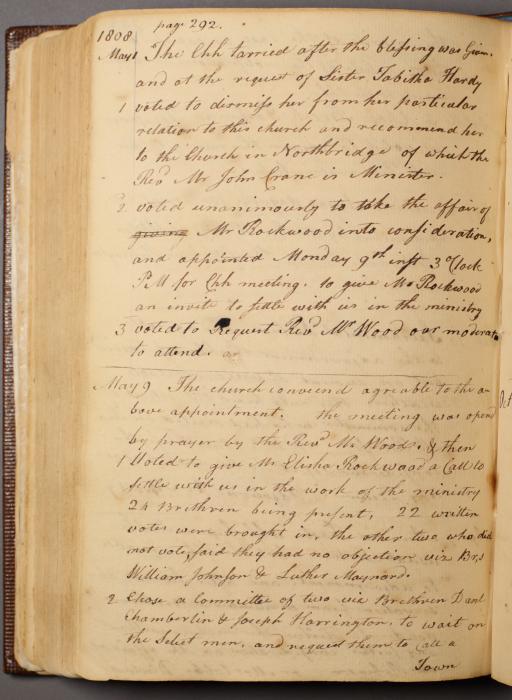 page 292.
1808
May 1 The Chh tarried after the blessing was Given.
and at the request of Sister Tabitha Hardy
1 voted to dismiss her from her particular
relation to this church and recommend her
to the Church in Northbridge of which the
Revd Mr John Crane is Minister.
2 voted unanimously to take the affair of
giving Mr Rockwood into consideration,
and appointed Monday 9th inst 3 oClock
PM for Chh meeting. to give Mr Rockwood
an invite to settle with us in the ministry
3 voted to Request Revd Mr Wood our moderator
to attend.
May 9 The church conveend agreable to the a
bove appointment. the meeting was opend
by prayer by the Revd Mr Wood. & then
1 Voted to give Mr Elisha Rockwood a Call to
settle with us in the work of the ministry
24 Brethren being present, 22 written
votes were brought in, the other two who did
not vote, said they had no objection viz Brs
William Johnson & Luther Maynard.
2 Chose a Committee of two viz Brethren Danl
Chamberlin & Joseph Harrington, to wait on
the Select men, and request them to Call a
Town
Oct